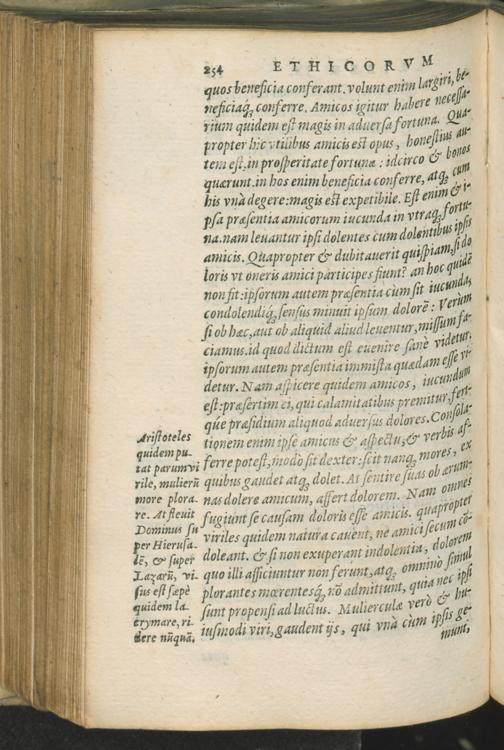 254 ETHICORVM
quos beneficia conferant. volunt enim largiri, be-
neficiaq́; conferre. Amicos igitur habere necessa-
rium quidem est magis in aduersa fortuna. Qua-
propter hîc vtilibus amicis est opus, honestius au-
tem est. in prosperitate fortunæ: idcirco & bonos
quærunt. in hos enim beneficia conferre, atq; cum
his vnà degere: magis est expetibile. Est enim & i-
psa præsentia amicorum iucunda in vtraq; fortu-
na. nam leuantur ipsi dolentes cum dolentibus ipsis
amicis. Quapropter & dubitauerit quispiam, si do
loris vt oneris amici participes fiunt? an hoc quidē
non fit: ipsorum autem præsentia cùm sit iucunda,
condolendiq́; sensus minuit ipsum dolorē: Verùm
si ob hæc, aut ob aliquid aliud leuentur, missum fa-
ciamus. id quod dictum est euenire sanè videtur.
ipsorum autem præsentia immista quædam esse vi-
detur. Nam aspicere quidem amicos, iucundum
est: præsertim ei, qui calamitatibus premitur, fert-
que præsidium aliquod aduersus dolores. Consola-
tionem enim ipse amicus & aspectu, & verbis af-
ferre potest, modò sit dexter: scit nanq; mores, ex
quibus gaudet atq; dolet. At sentire suas ob ærum-
nas dolere amicum, affert dolorem. Nam omnes
fugiunt se causam doloris esse amicis. quapropter
viriles quidem natura cauent, ne amici secum cō-
doleant. & si non exuperant indolentia, dolorem
quo illi afficiuntur non ferunt, atq; omnino simul
plorantes mœrentesq́; nō admittunt, quia nec ipsi
sunt propensi ad luctus. Mulierculæ verò & hu-
iusmodi viri, gaudent ijs, qui vnà cum ipsis ge-
munt,
Aristoteles
quidem pu-
tat parum vi
rile, mulierū
more plora-
re. At fleuit
Dominus su
per Hierusa-
lē, & super
Lazarū, vi-
sus est sæpè
quidem la-
crymare, ri-
dere nūquā.